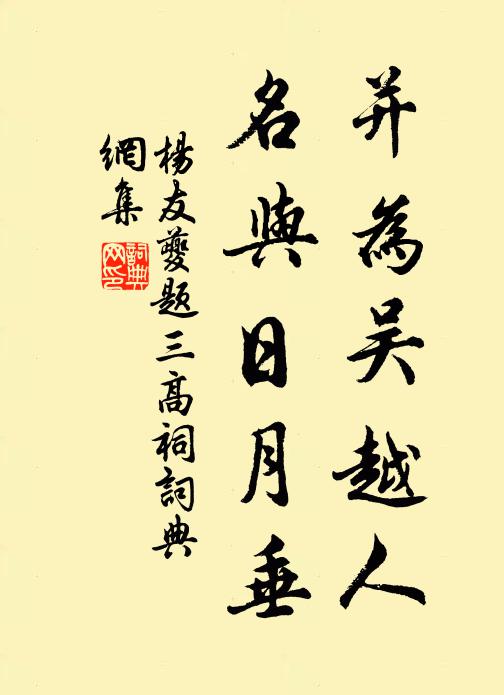 并為吴越人
名與日月垂
楊友夔題三高祠詞典
網集
詞典
网印